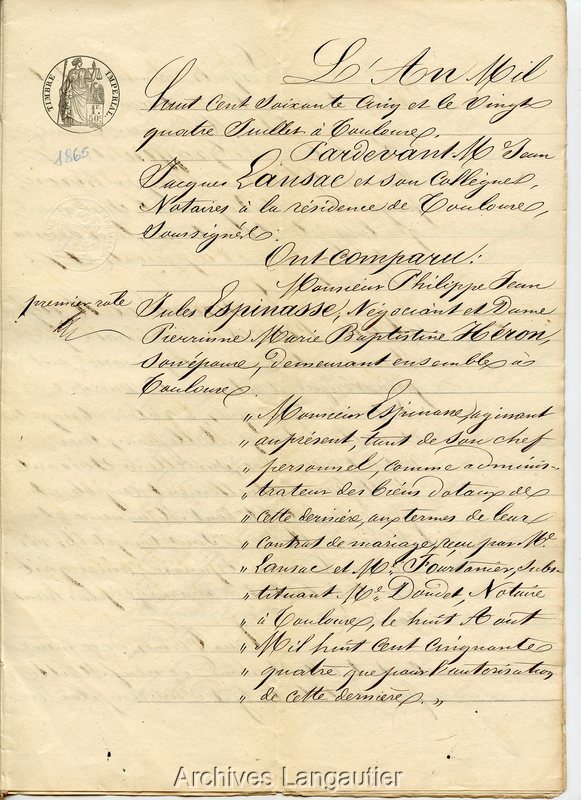 TIMBRE IMPERIAL
1F
50c
1865
L'An Mil
huit cent soixante cinq et le vingt
quatre Juillet à Toulouse.
Pardevant Me Jean
Jacques Lansac et son Collègue,
Notaires à la résidence de Toulouse,
Soussignés.
Ont comparu:
Monsieur Philippe Jean
premier role
Jules Espinasse, Négociant et Dame
Pierrinne Marie Baptistine Héron,
son épouse, demeurant ensemble à
Toulouse.
" Monsieur Espinasse, agissant
" au présent, tant de son chef
" personnel, comme adminis-
" trateur des biens dotaux de
" cette dernière, aux termes de leur
" contrat de mariage, reçu par Me
" Lansac et Me Fourtanier, subs-
" tituant Me Doudet, Notaire
" à Toulouse, le huit Aout
" Mil huit cent cinquante
" quatre que pour l'autorisation
" de cette dernière. "
Archives Langautier